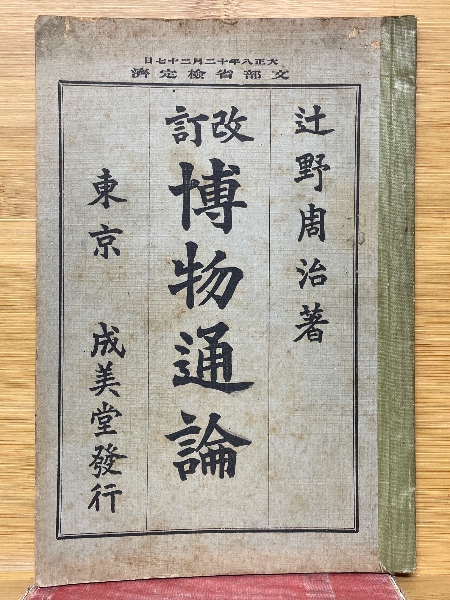 大正八年十二月二十七日
文部省檢定濟
辻野周治著
改訂
博物通論
東京 成美堂發行